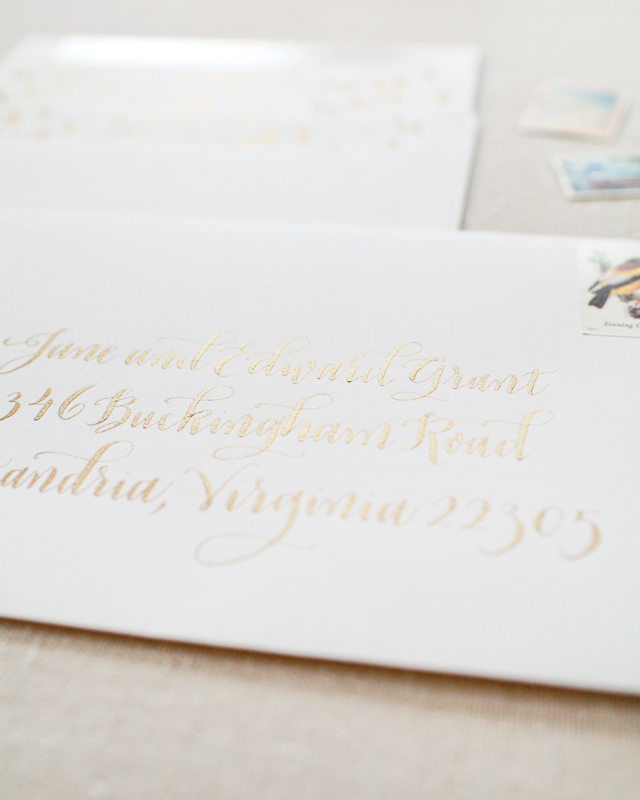 Jane and Edward Grant
346 Buckingham Road
andria, Virginia 22305
Evening